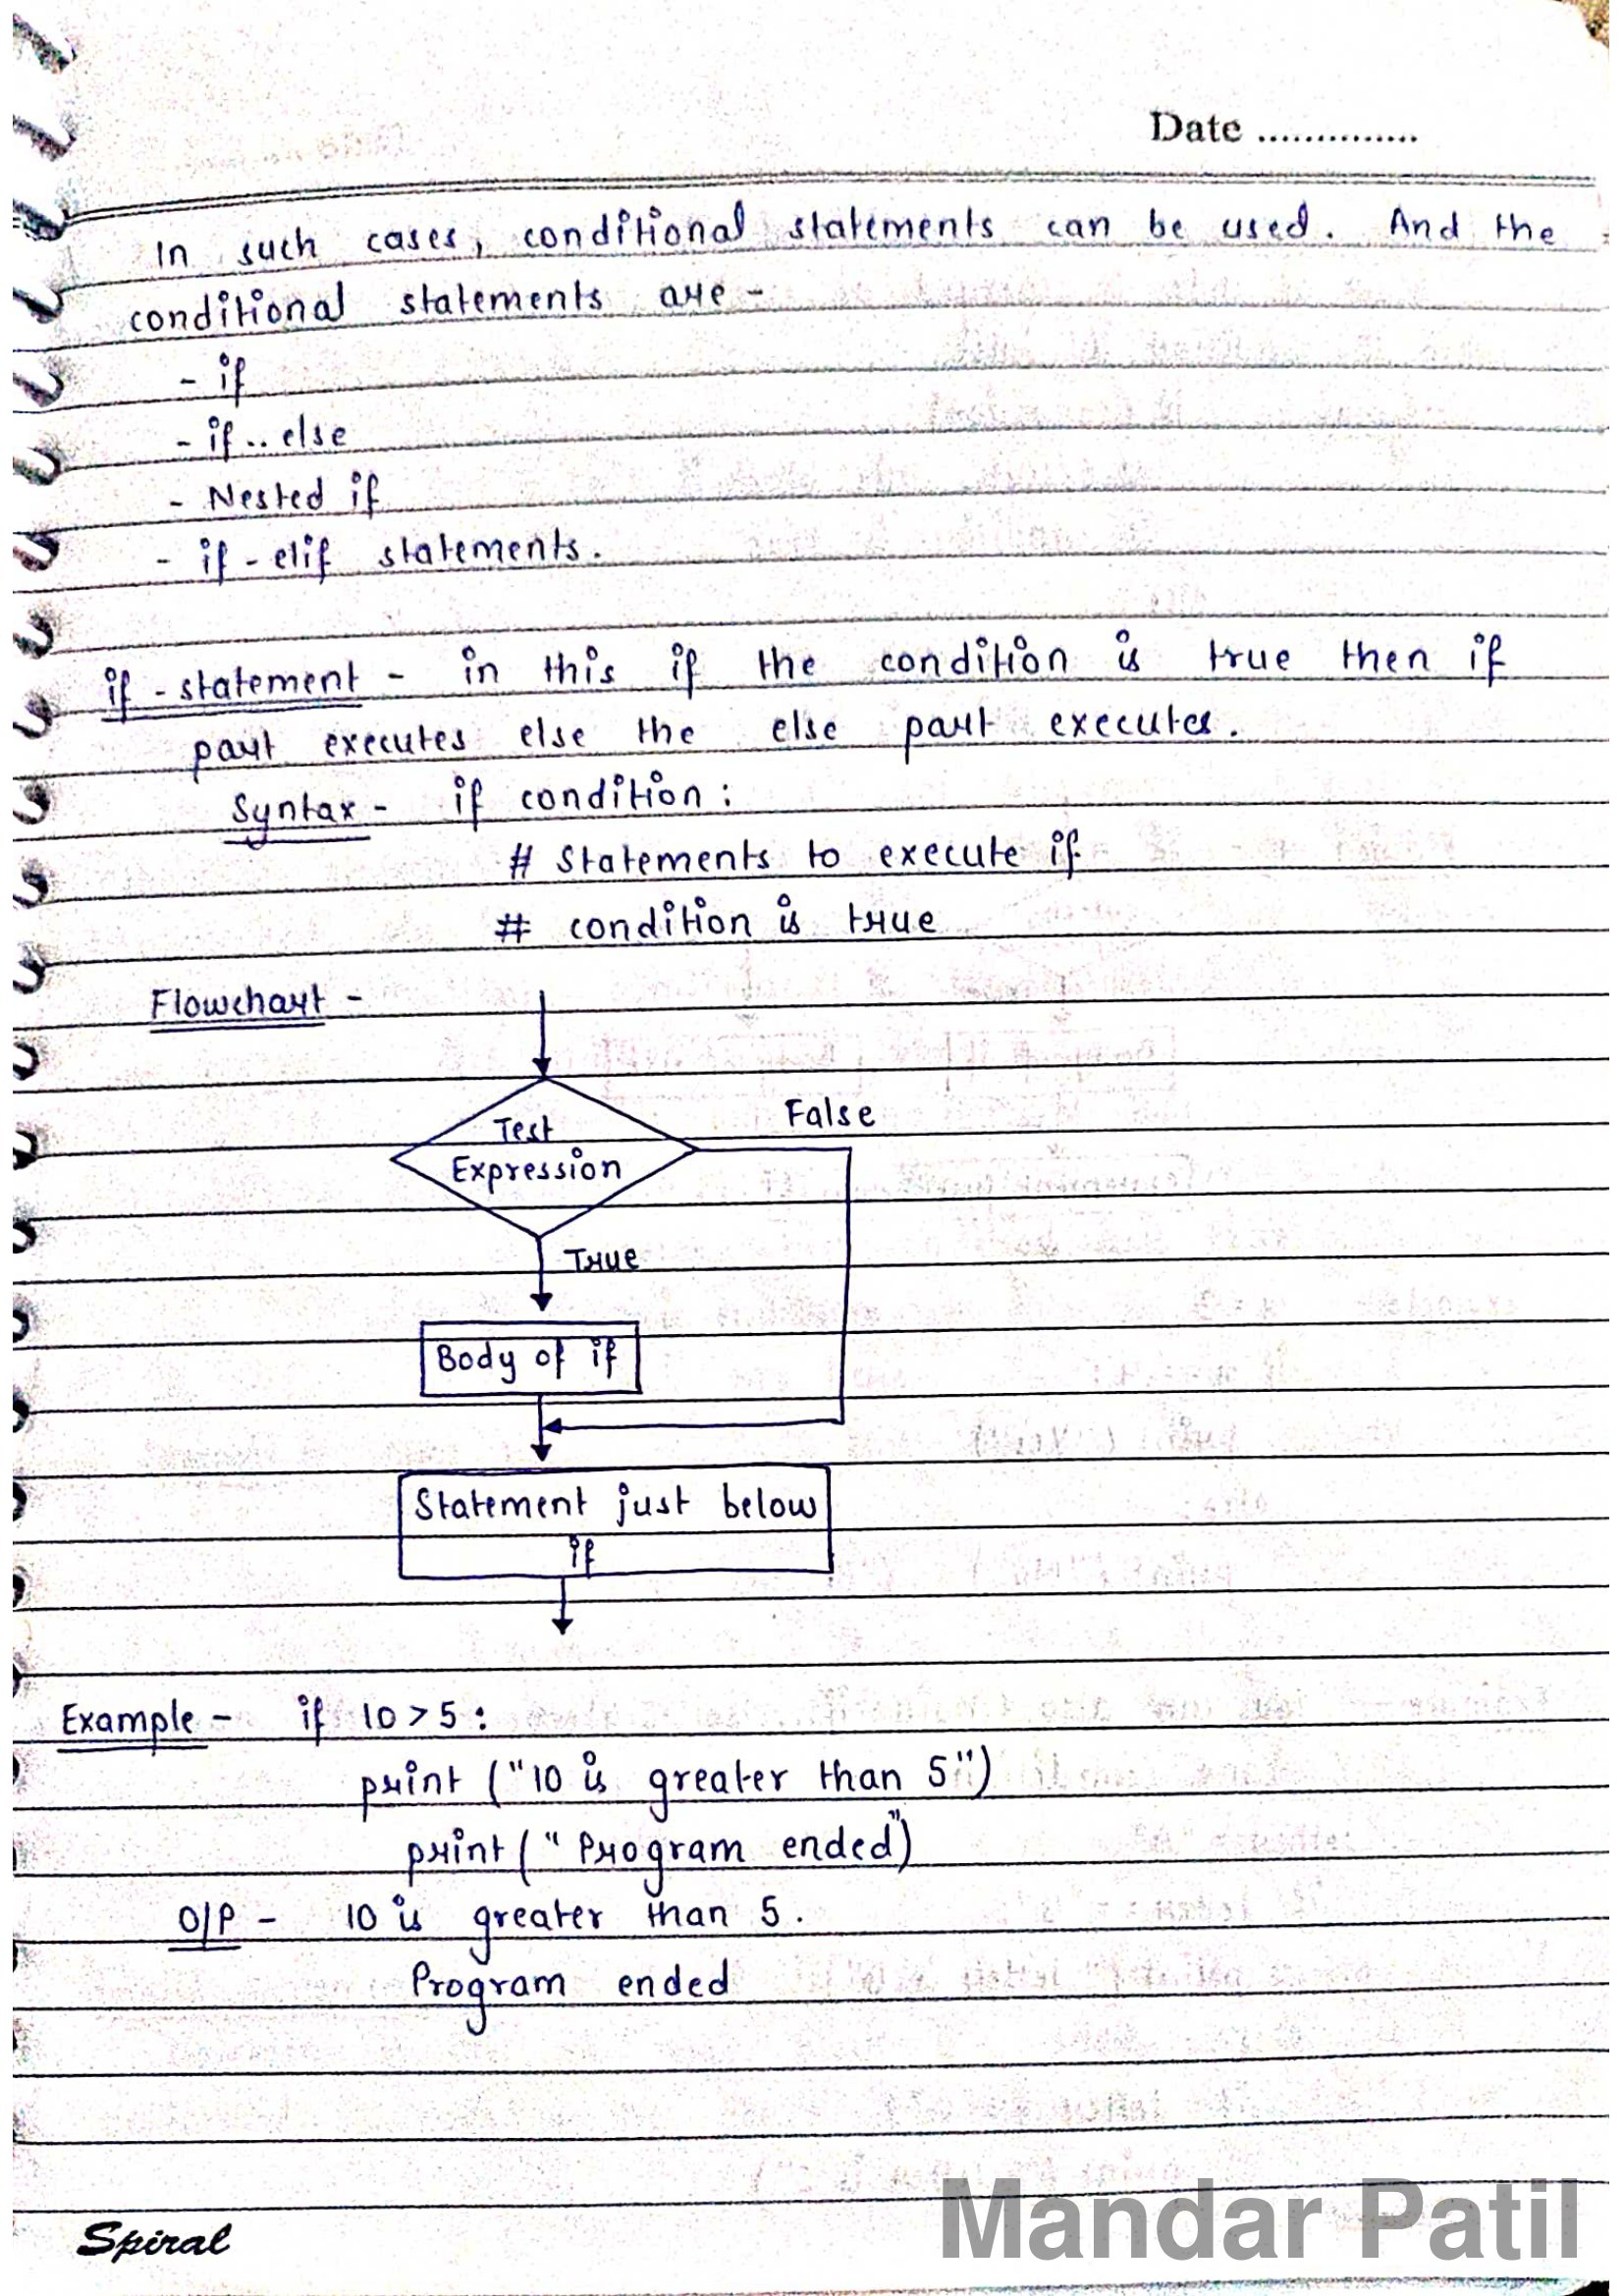 Date ..............
In such cases, conditional statements can be used. And the
conditional statements are -
- if
- if .. else
- Nested if
- if - elif statements.
if - statement - in this if the condition is true then if
part executes else the else part executes.
Syntax - if condition :
# Statements to execute if
# condition is true
Flowchart -
Test
Expression
False
True
Body of if
Statement just below
if
Example - if 10 > 5 :
print ("10 is greater than 5")
print (" Program ended")
O/P - 10 is greater than 5.
Program ended
Spiral
Mandar Patil